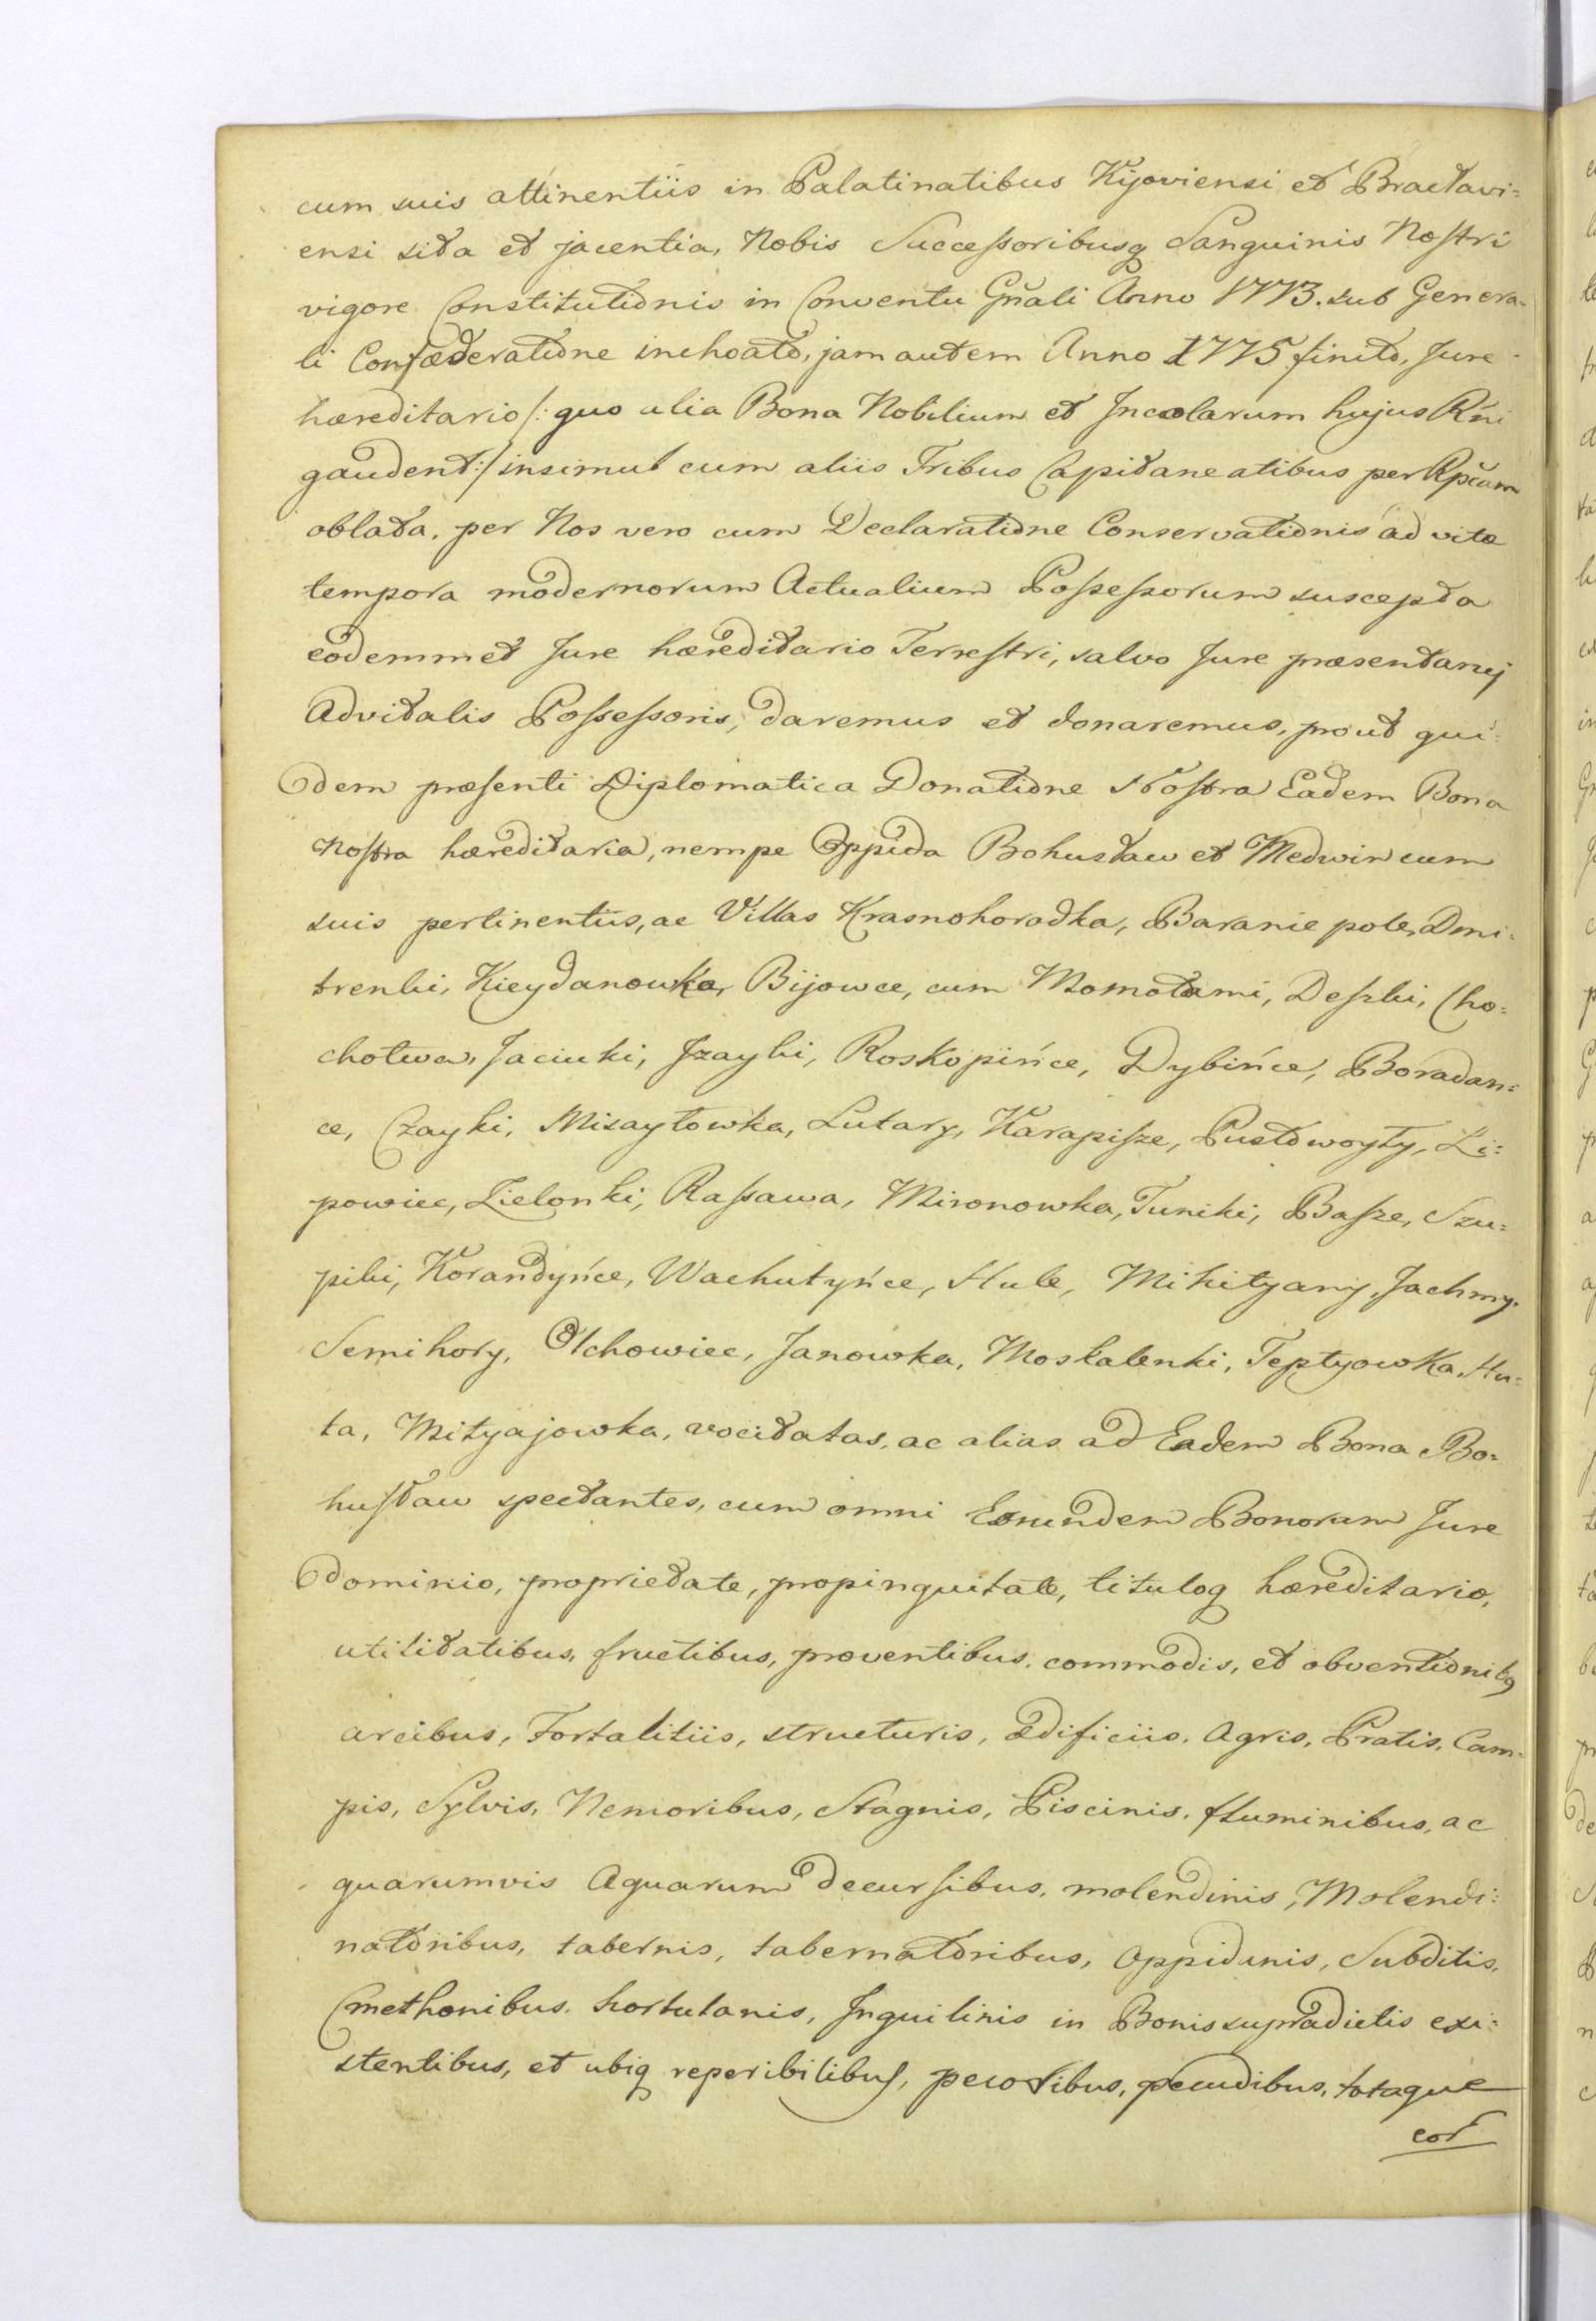 cum suis attinentiis in Palatinatibus Kijoviensi et Braclavi=
ensi sita et jacentia, Nobis Successoribusq Sanguinis Nostri
vigore Constitutionis in Conventu Gñali Anno 1773. sub Genera-
li Confæderatione inchoato, jam autem Anno 1775 finito, Jure
hæreditario /: quo alia Bona Nobilium et Incolarum hujus Rñi
gaudent :/ insimul cum aliis Tribus Capitaneatibus per Rpcam
oblata, per Nos vero cum Declaratione Conservationis ad vitæ
tempora modernorum Actualium Possessorum suscepta
eodemmet Jure hæreditario Terrestri, salvo Jure præsentanej
Advitalis Possessoris, daremus et donaremus, prout qui=
dem præsenti Diplomatica Donatione Nostra Eadem Bona
Nostra hæreditaria, nempe Oppida Bohusław et Medwin cum
suis pertinentiis, ac Villas Krasnohoradka, Baranie pole, Dmi=
trenki, Kieydanowka, Bijowce, cum Momotami, Deszki, Cho=
chotwa, Jaciuki, Jzayki, Roskopińce, Dybińce, Boradan=
ce, Czayki, Misaytowka, Lutary, Karapisze, Pustowoyty, Li=
powiec, Zielonki, Rassawa, Mironowka, Tuniki, Basze, Szu=
piki, Korandyńce, Wachutyńce, Hule, Mikityany, Jachny,
Semihory, Olchowiec, Janowka, Moskalenki, Teptyowka, Hu=
ta, Mityajowka, vocitatas, ac alias ad Eadem Bona Bo=
husław spectantes, cum omni Eorundem Bonorum Jure
dominio, proprietate, propinquitate, tituloq hæreditario,
utilitatibus, fructibus, proventibus, commodis, et obventionibq
arcibus, Fortalitiis, structuris, ædificiis, Agris, Pratis, Cam=
pis, Sylvis, Nemoribus, Stagnis, Piscinis, fluminibus, ac
quarumvis Aquarum decursibus, molendinis, Molendi=
natoribus, tabernis, tabernatoribus, Oppidanis, Subditis,
Cmethonibus, hortulanis, Inquilinis in Bonis supradictis exi=
stentibus, et ubiq reperibilibus, pecoribus, pecudibus, totaque
eor